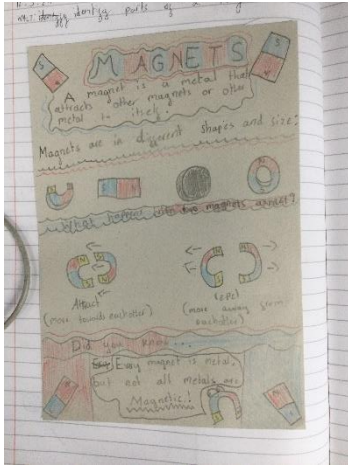 identify parts of
MAGNETS
A magnet is a metal that
attracts other magnets or other
metal to itself.
Magnets are in different shapes and size:
What happens to two magnets
Attract
(move towards eachother)
repel
(move away from
eachother)
Did you know...
Every magnet is metal,
but not all metals are
Magnetic!